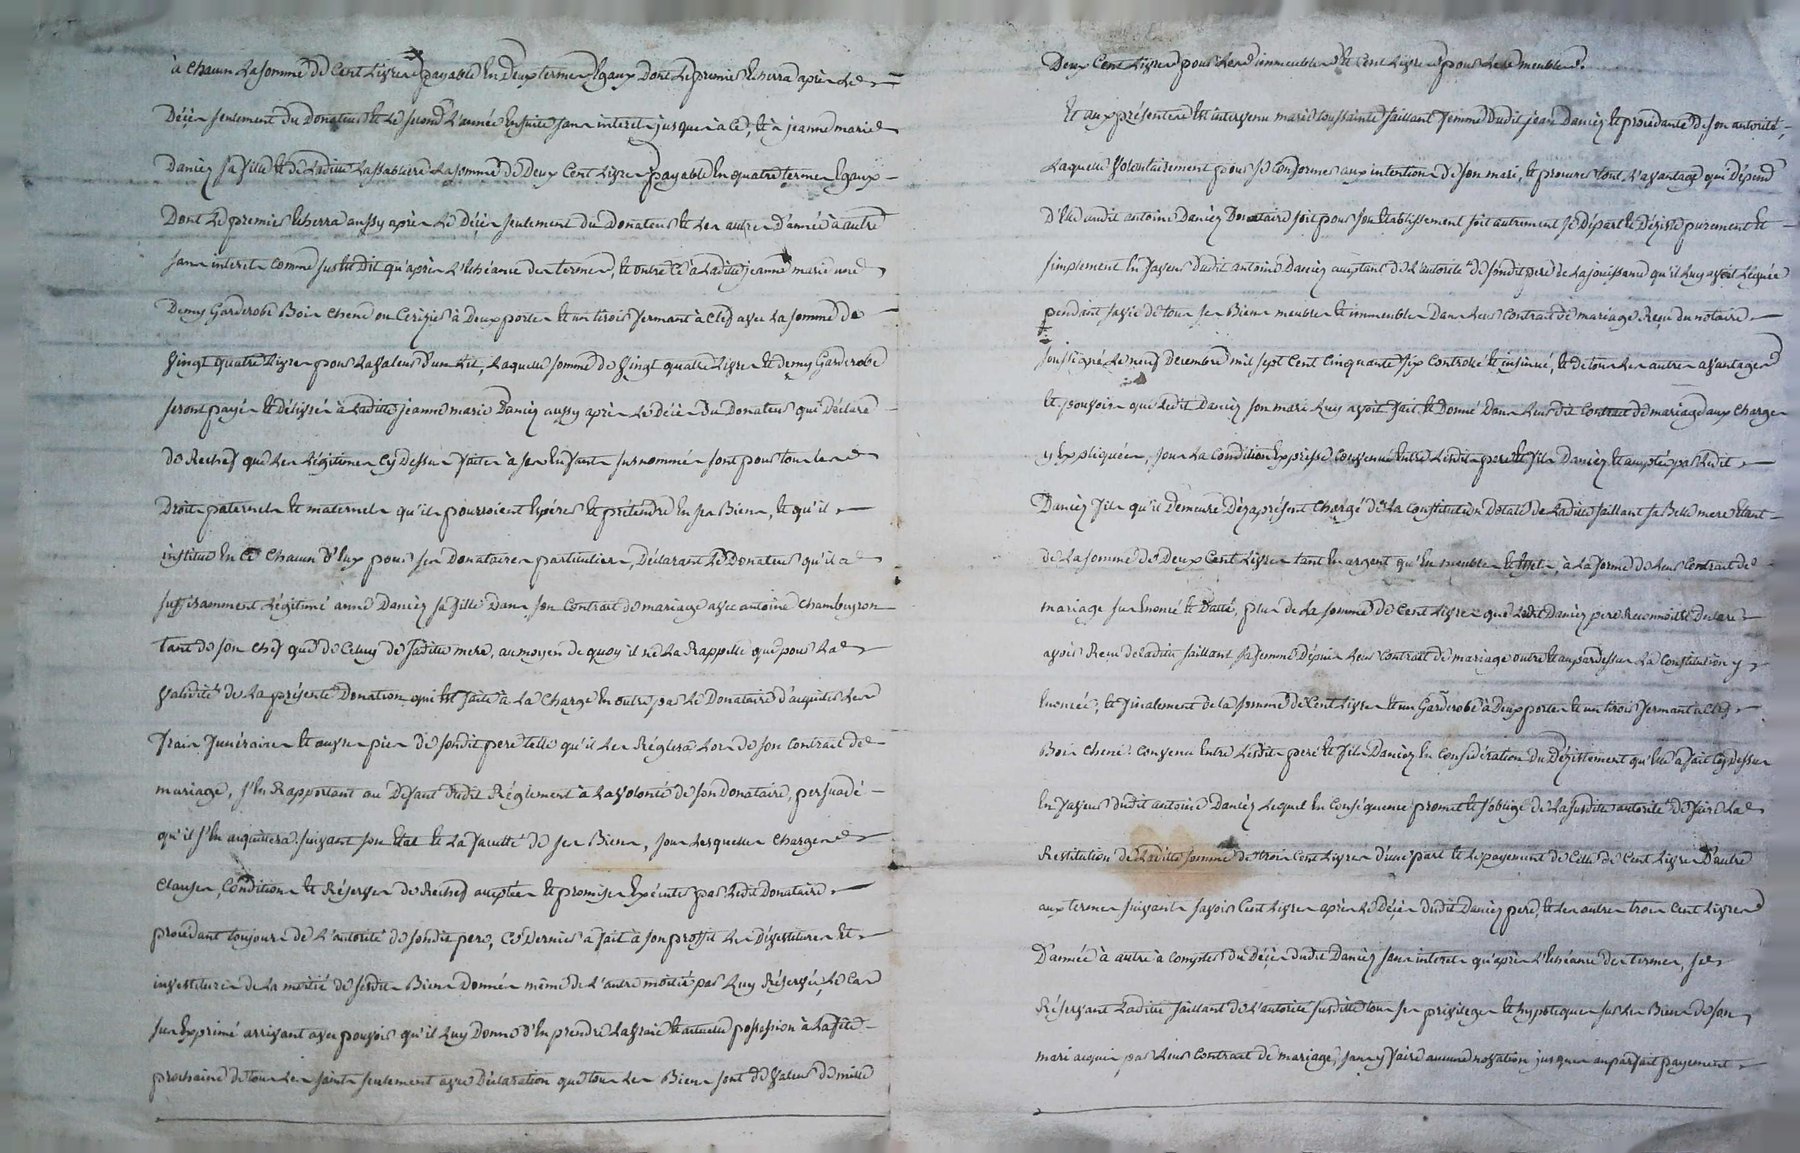 à chacun la somme de Cent livres payable En deux termes Egaux dont le premier Echerra après le
Décès seulement du Donateur et le second l'année Ensuite sans interet jusques à ce, et à jeanne marie
Daniéz sa fille et de laditte Lassabliere la somme de Deux Cent livres payable En quatre termes Egaux
Dont le premier Echerra aussy après le Décès seulement du Donateur et les autres d'année à autre
sans interet comme sus Est dit qu'après l'Echéance des termes, et outre ce à laditte jeanne marie une
Demy Garderobe Bois chene ou Cerizier à Deux portes et un tiroir fermant à clef avec la somme de
Vingt quatre livres pour la valeur d'un lit, laquelle somme de Vingt quatre livres et demy Garderobe
seront payés et délivrés à laditte jeanne marie Daniéz aussy après le décès du Donateur qui déclare
de Rechef que les légitimes Cy dessus faites à ses Enfants susnommés sont pour tous les
Droits paternels et maternels qu'ils pourroient Espérer et prétendre En ses Biens, et qu'il
institue En ce chacun d'Eux pour ses Donataires particuliers, Déclarant le Donateur qu'il a
suffisamment légitimé anne Daniéz sa fille dans son Contrat de mariage avec antoine Chambeyron
tant de son chef que de Celuy de saditte mere, au moyen de quoy il ne la Rappelle que pour la
validité de la présente Donation qui Est faite à la charge En outre par le Donataire d'acquiter les
frais funéraires et œuvres pies de sondit pere telle qu'il les Réglera lors de son Contrat de
mariage, s'En Rapportant au Défaut dudit Réglement à la volonté de son donataire, persuadé
qu'il s'En acquittera suivant son Etat et la faculté de ses Biens, sous lesquelles charges
Clauses, Conditions et Réserves de Rechef acceptées et promises Exécuter par ledit Donataire
procédant toujours de l'autorité de sondit pere, Ce Dernier a fait à son proffit les Dévestitures Et
investitures de la moitié de sesdits Biens donnés même de l'autre moitié par luy Réservée, le cas
sus Exprimé arrivant avec pouvoir qu'il luy Donne d'En prendre la vraie et actuelle possession à la fête
prochaine de tous les saints seulement avec Déclaration que tous les Biens sont de valeur de mille
Deux Cent livres pour les immeubles et Cent livres pour les meubles.
Et aux présentes Est intervenu marie toussainte faillant femme dudit jean Daniéz et procédante de son autorité,
Laquelle volontairement pour se conformer aux intentions de son mari, et procurer tout l'avantage qui dépend
D'Elle audit antoine Daniéz Donataire soit pour son Etablissement soit autrement se départ et Déziste purement et
simplement En faveur dudit antoine Daniéz acceptant de l'autorité de sondit pere de la jouissance qu'il luy avoit léguée
pendant sa vie de tous ses Biens meubles et immeubles Dans leur Contrat de mariage Reçu du notaire
soussigné le neuf Decembre mil sept Cent Cinquante six Controlé et insinué, et de tous les autres avantages
et pouvoirs que ledit Daniéz son mari luy avoit fait et Donné dans leur dit Contrat de mariage aux charges
y Expliquées, sous la Condition Expresse Convenue Entre lesdits pere et fils Daniéz et acceptée par ledit
Daniéz fils qu'il demeure Dez aprésent chargé de la Constitution Dotale de laditte faillant sa Belle mere Etant
de la somme de Deux Cent livres tant En argent qu'En meubles et Effets, à la forme de leur Contrat de
mariage sus Enoncé et datté, plus de la somme de Cent livres que ledit Daniéz pere Reconnoit et Declare
avoir Reçu de laditte faillant sa femme Depuis leur Contrat de mariage outre et au pardessus la Constitution y
Enoncée, et finalement de la somme de Cent livres et un Garderobe à Deux portes et un tiroir fermant à clef
Bois chene Convenu Entre lesdits pere et fils Daniéz En Considération du Dézistement qu'Elle a fait Cy dessus
En faveur dudit antoine Daniéz Lequel En Conséquence promet et s'oblige de la susditte autorité de faire la
Restitution de laditte somme de trois Cent livres d'une part et le payement de Celle de Cent livres D'autre
aux termes suivants savoir Cent livres après le Décès dudit Daniéz pere, et les autres trois Cent livres
D'année à autre à compter du décès dudit Daniéz sans interet qu'après l'Echéance des termes, se
Réservant laditte faillant de l'autorité susditte tous ses privileges et hypotéques sur les Biens de son
mari acquis par leur Contrat de mariage, sans y faire aucune novation jusques au parfait payement